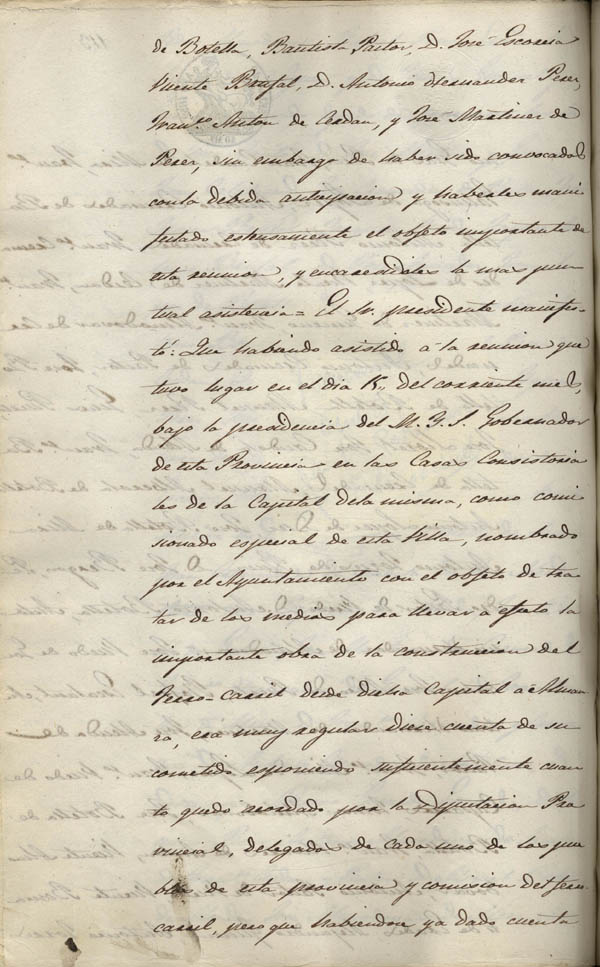 de Botella, Bautista Pastor, D. José Escorcia
Vicente Brufal, D. Antonio Hernandez Perez,
Fran.co Anton de Cerdan, y José Martinez de
Perez, sin embargo de haber sido convocados
con la debida anticipacion y haberles mani
festado estensamente el objeto importante de
esta reunion, y encarecidoles la mas pun
tual asistencia = El Sr. presidente manifes-
tó: Que habiendo asistido a la reunion que
tuvo lugar en el dia 15,, del corriente mes,
bajo la presidencia del M. Y. S. Gobernador
de esta Provincia en las Casas Consistoria
les de la Capital dela misma, como comi
sionado especial de esta Villa, nombrado
por el Ayuntamiento con el objeto de tra
tar de los medios para llevar a efecto la
importante obra de la construccion del
Ferro-carril desde dicha Capital a Alman
sa, era muy regular diese cuenta de su
cometido esponiendo suficientemente cuan
to quedo acordado por la Diputacion Pro
vincial, delegados de cada uno de los pue
blos de esta provincia y comision del ferro
carril, pero que habiendose ya dado cuenta